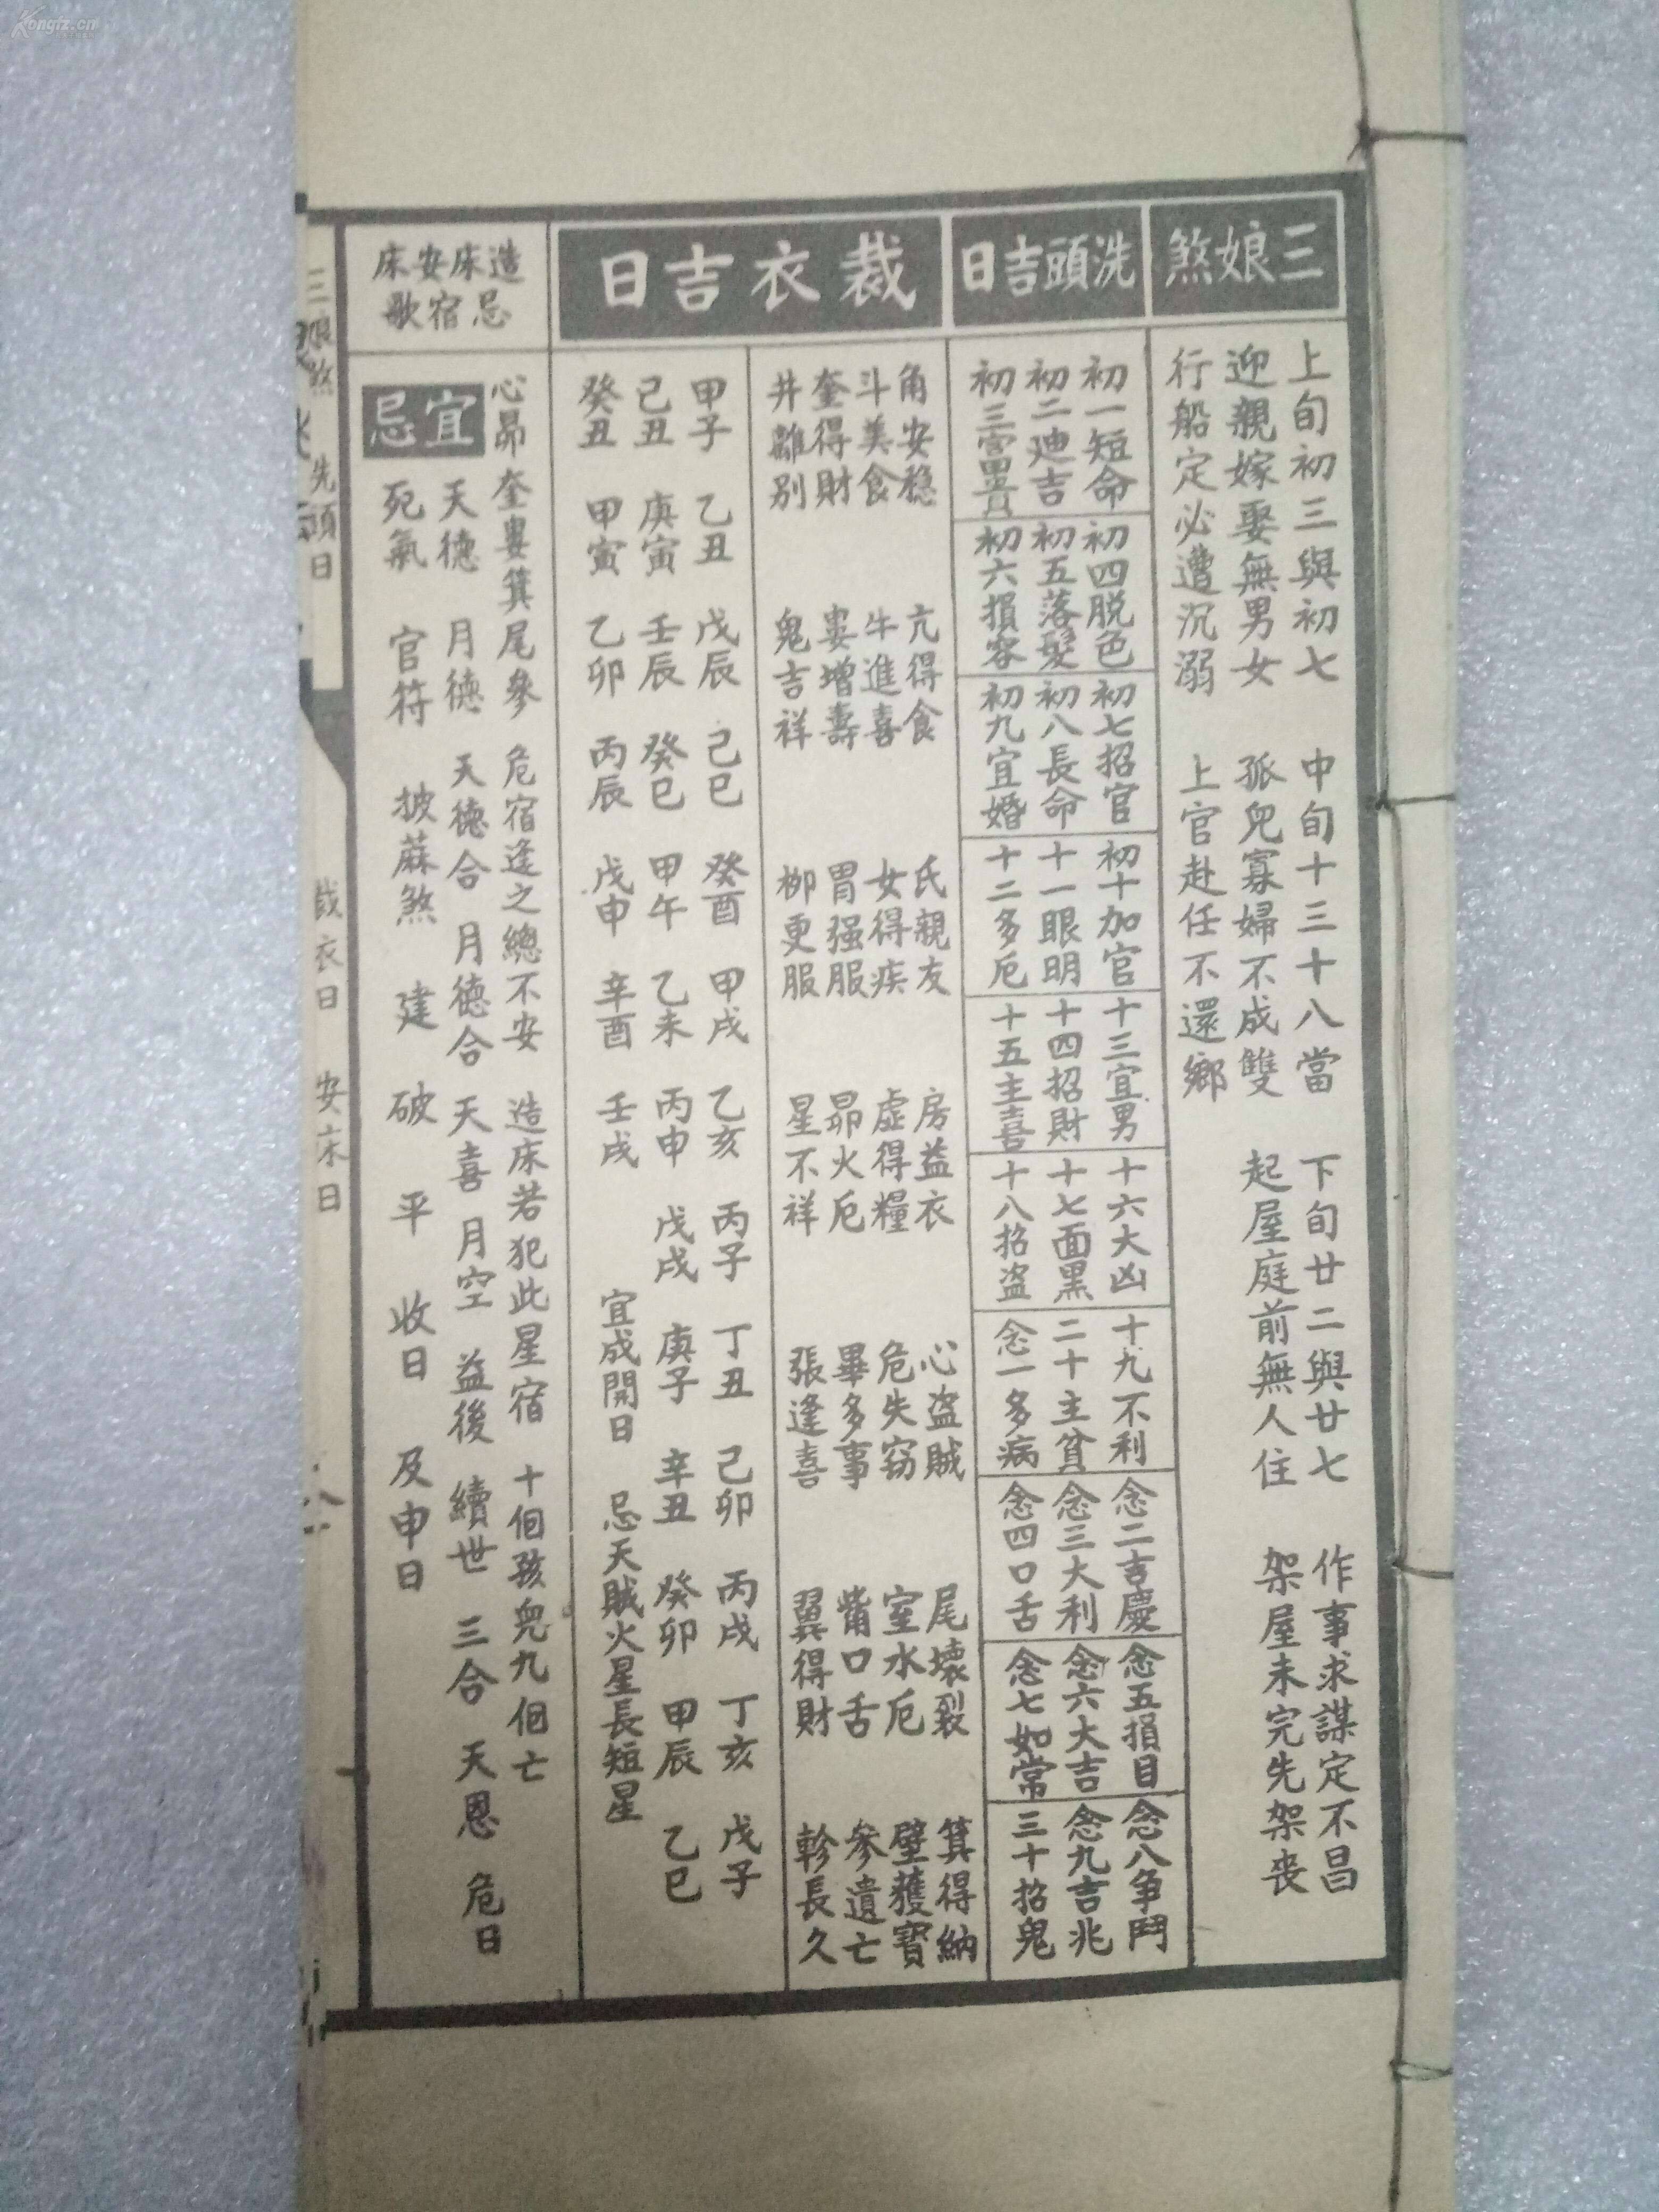 Kongfz.cn
三娘煞
上旬初三與初七 中旬十三十八當 下旬廿二與廿七 作事求謀定不昌
迎親嫁娶無男女 孤兒寡婦不成雙 起屋庭前無人住 架屋未完先架丧
行船定必遭沉溺 上官赴任不還鄉
洗頭吉日
初一短命
初二迪吉
初三富貴
初四脱色
初五落髮
初六損容
初七招官
初八長命
初九宜婚
初十加官
十一眼明
十二多厄
十三宜男
十四招財
十五主喜
十六大凶
十七面黑
十八招盜
十九不利
二十主貧
念一多病
念二吉慶
念三大利
念四口舌
念五損目
念六大吉
念七如常
念八争鬥
念九吉兆
三十招鬼
裁衣吉日
角安稳 亢得食 氏親友 房益衣 心盜賊 尾壞裂 箕得納
斗美食 牛進喜 女得疾 虚得糧 危失窃 室水厄 壁獲寶
奎得財 婁增壽 胃强服 昴火厄 畢多事 觜口舌 參遺亡
井離别 鬼吉祥 柳更服 星不祥 張逢喜 翼得財 軫長久
甲子 乙丑 戊辰 己巳 癸酉 甲戌 乙亥 丙子 丁丑 己卯 丙戌 丁亥 戊子
己丑 庚寅 壬辰 癸巳 甲午 乙未 丙申 戊戌 庚子 辛丑 癸卯 甲辰 乙巳
癸丑 甲寅 乙卯 丙辰 戊申 辛酉 壬戌 宜成開日 忌天賊火星長短星
造床安床
忌宿歌
心昴奎婁箕尾參 危宿逢之總不安 造床若犯此星宿 十個孩兒九個亡
宜 天德 月德 天德合 月德合 天喜 月空 益後 續世 三合 天恩 危日
忌 死氣 官符 披蔴煞 建 破 平 收日 及申日
三娘煞 洗頭日 裁衣日 安床日